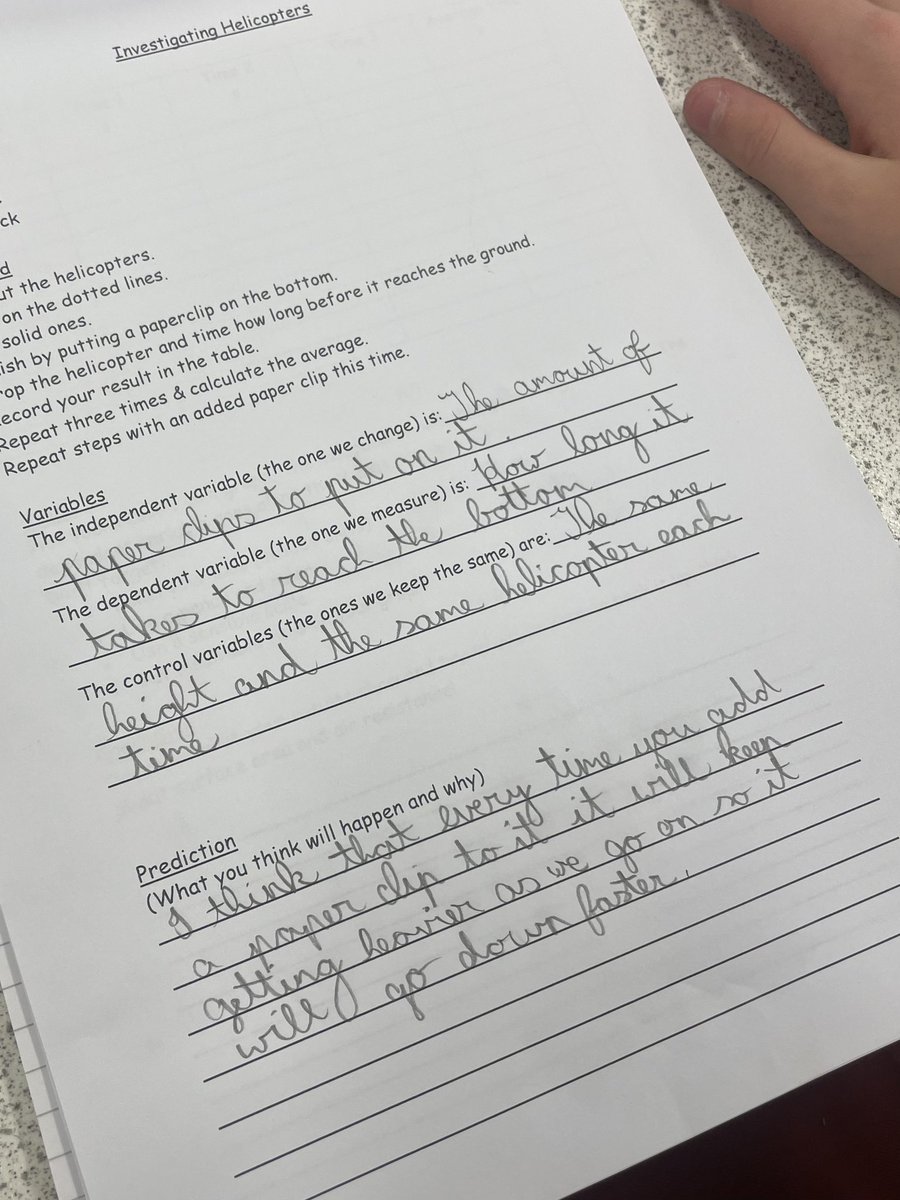 Investigating Helicopters
ck
d
ut the helicopters.
on the dotted lines.
solid ones.
ish by putting a paperclip on the bottom.
rop the helicopter and time how long before it reaches the ground.
ecord your result in the table.
Repeat three times & calculate the average.
Repeat steps with an added paper clip this time.
Variables
The independent variable (the one we change) is: The amount of
paper clips to put on it.
The dependent variable (the one we measure) is: How long it
takes to reach the bottom
The control variables (the ones we keep the same) are: The same
height and the same helicopter each
time
Prediction
(What you think will happen and why)
I think that every time you add
a paper clip to it it will keep
getting heavier as we go on so it
will go down faster.